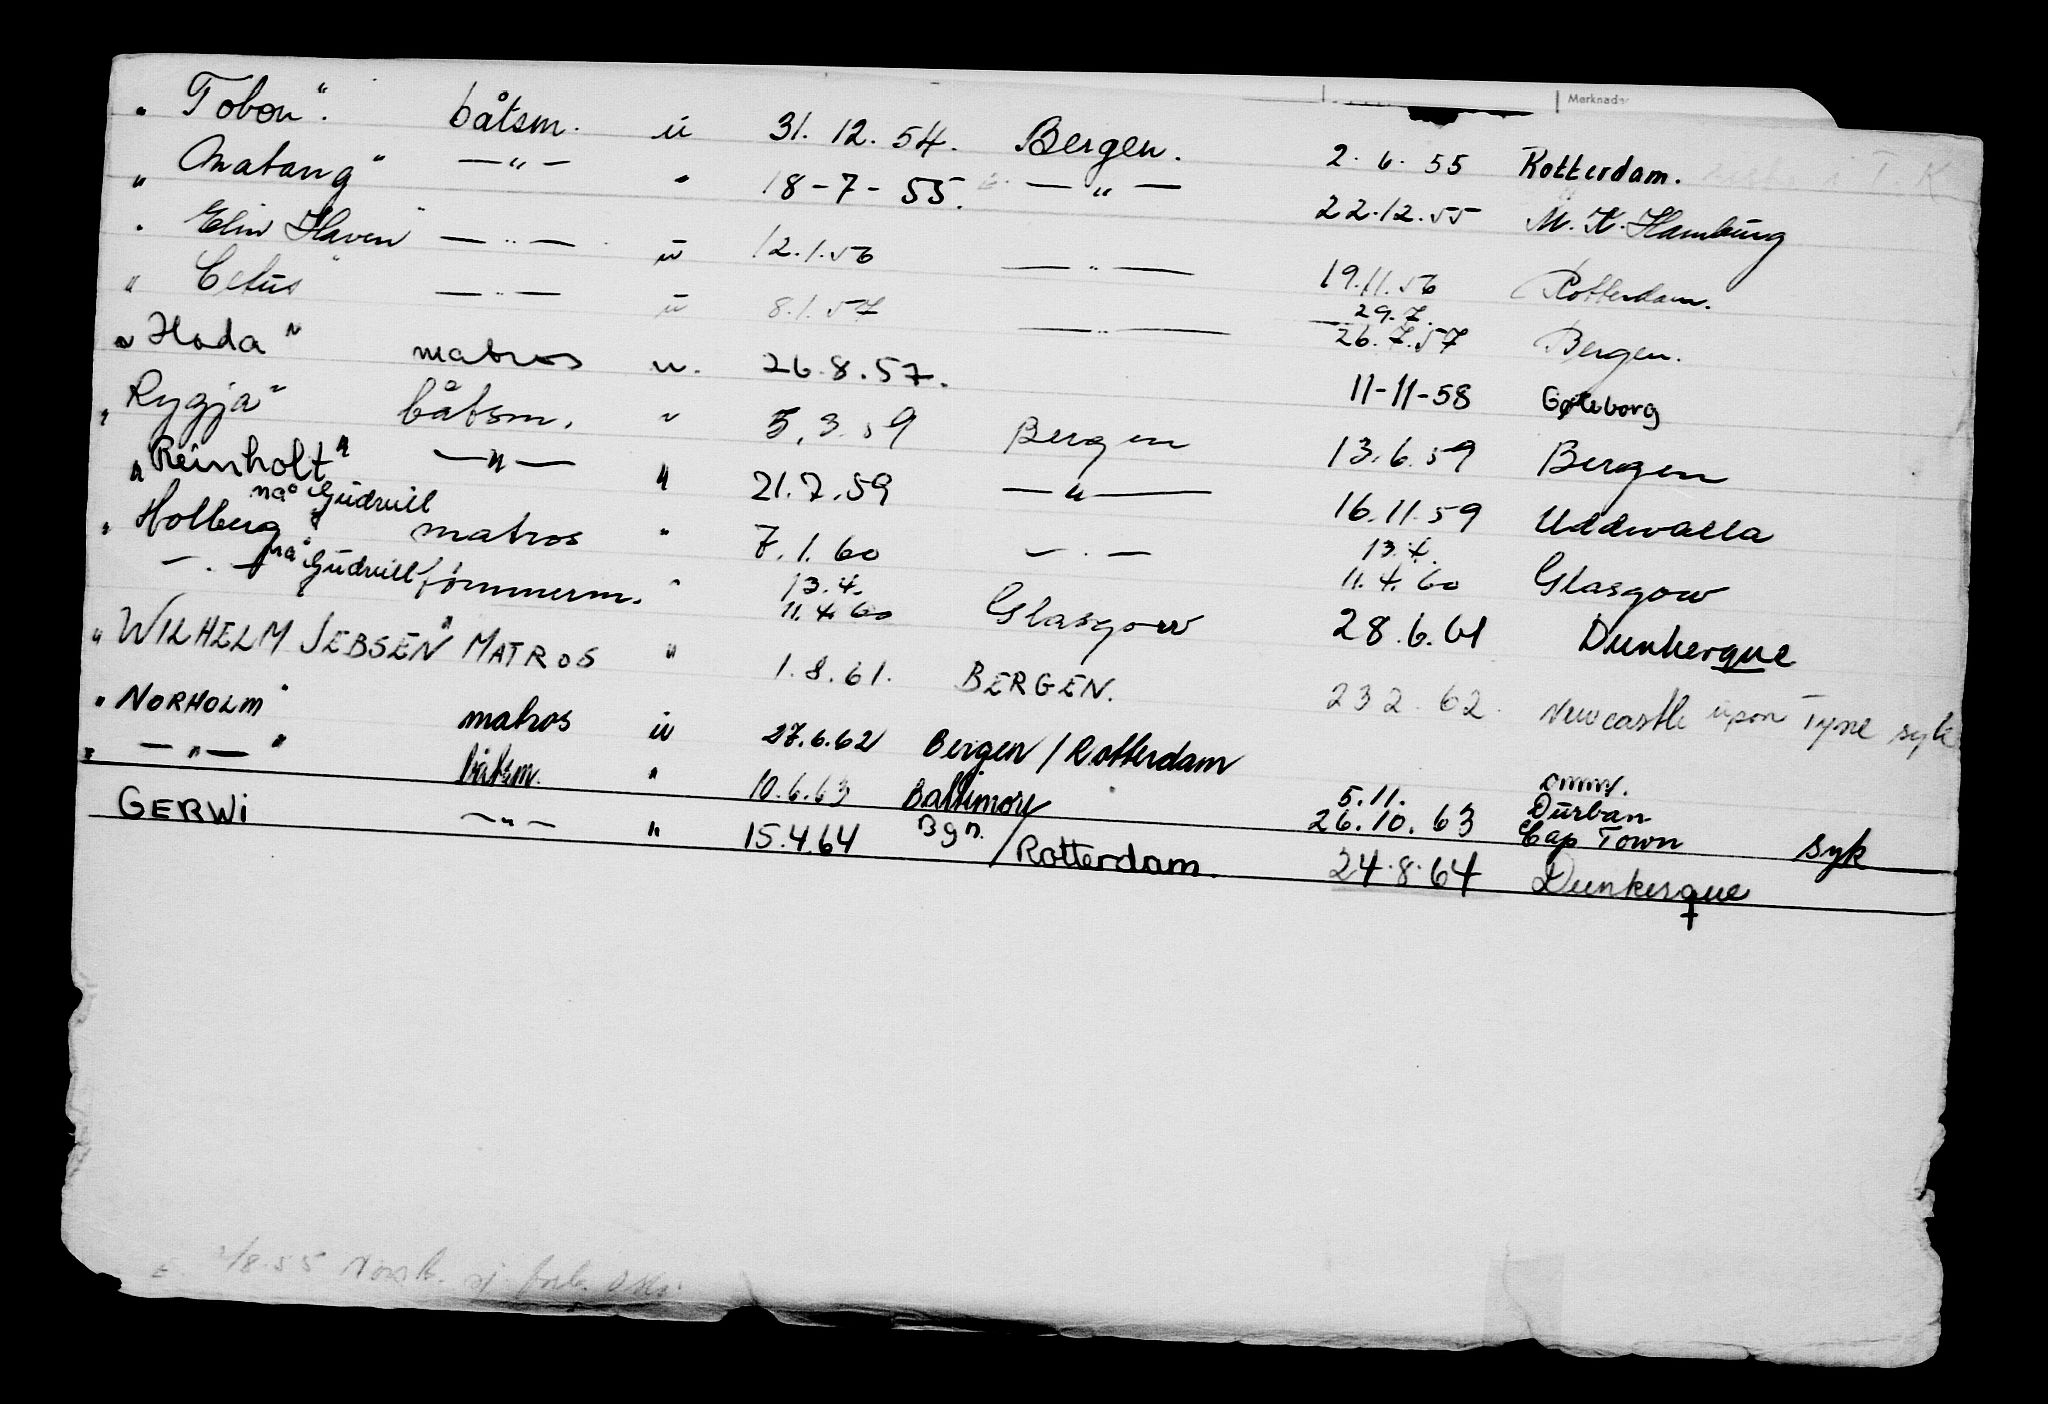 Merknader
„ Tobon". båtsm. u 31. 12. 54. Bergen. 2. 6. 55 Rotterdam.
„ Matang" —„— „ 18-7-55. —„— 22.12.55 M. K. Hamburg
„ Elin Haven" —„— u 12.1.56 —„— 19.11.56 Rotterdam.
„ Cetus" —„— u 8.1.57 —„— 29.7. 26.7.57 Bergen.
„ Hada" matros u. 26.8.57. 11-11-58 Gøteborg
„ Rygja" båtsm. „ 5.3.59 Bergen 13.6.59 Bergen
„ Reinholt" —„— „ 21.7.59 —„— 16.11.59 Uddevalla
„ Holberg nå Gudvill matros „ 7.1.60 —„— 13.4. 11.4.60 Glasgow
—„— nå Gudvill tömmerm. „ 13.4. 11.4.60 Glasgow 28.6.61 Dunkerque
„ WILHELM JEBSEN" MATROS „ 1.8.61. BERGEN. 23 2. 62. Newcastle upon Tyne syk
„ NORHOLM" matros u 27.6.62 Bergen / Rotterdam omm.
„ —„— " båtsm. „ 10.6.63 Baltimore 5.11. 26.10.63 Durban Cap Town syk
GERWI —„— „ 15.4.64 Bgn. / Rotterdam. 24.8.64 Dunkerque
/8.55 Norsk. sj. forb. Oslo.